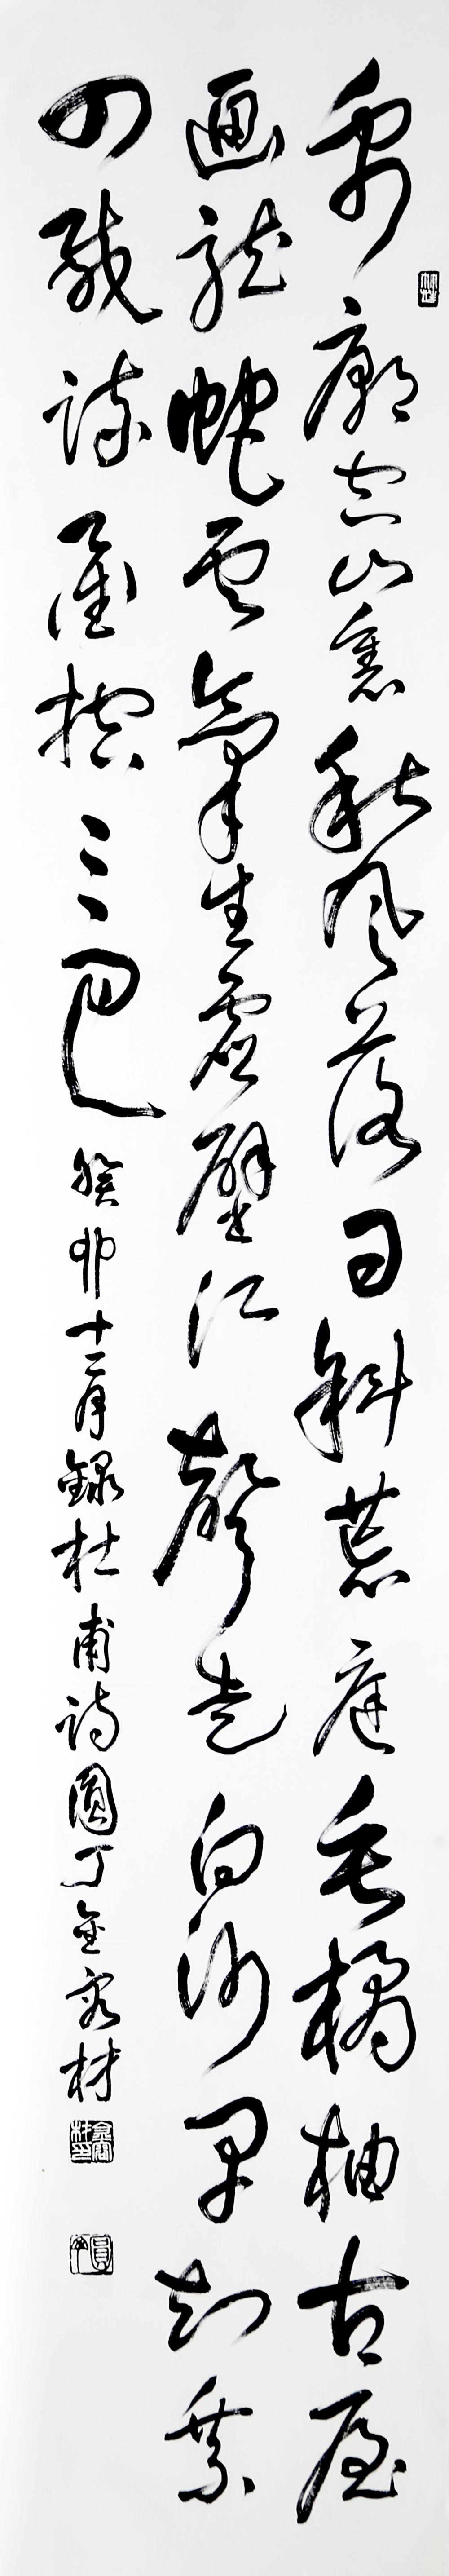 禹廟空山裏秋風落日斜荒庭垂橘柚古屋
畫龍蛇雲氣生虛壁江聲走白沙早知乘
四載疏鑿控三巴癸卯十二月錄杜甫詩圓丁金容材